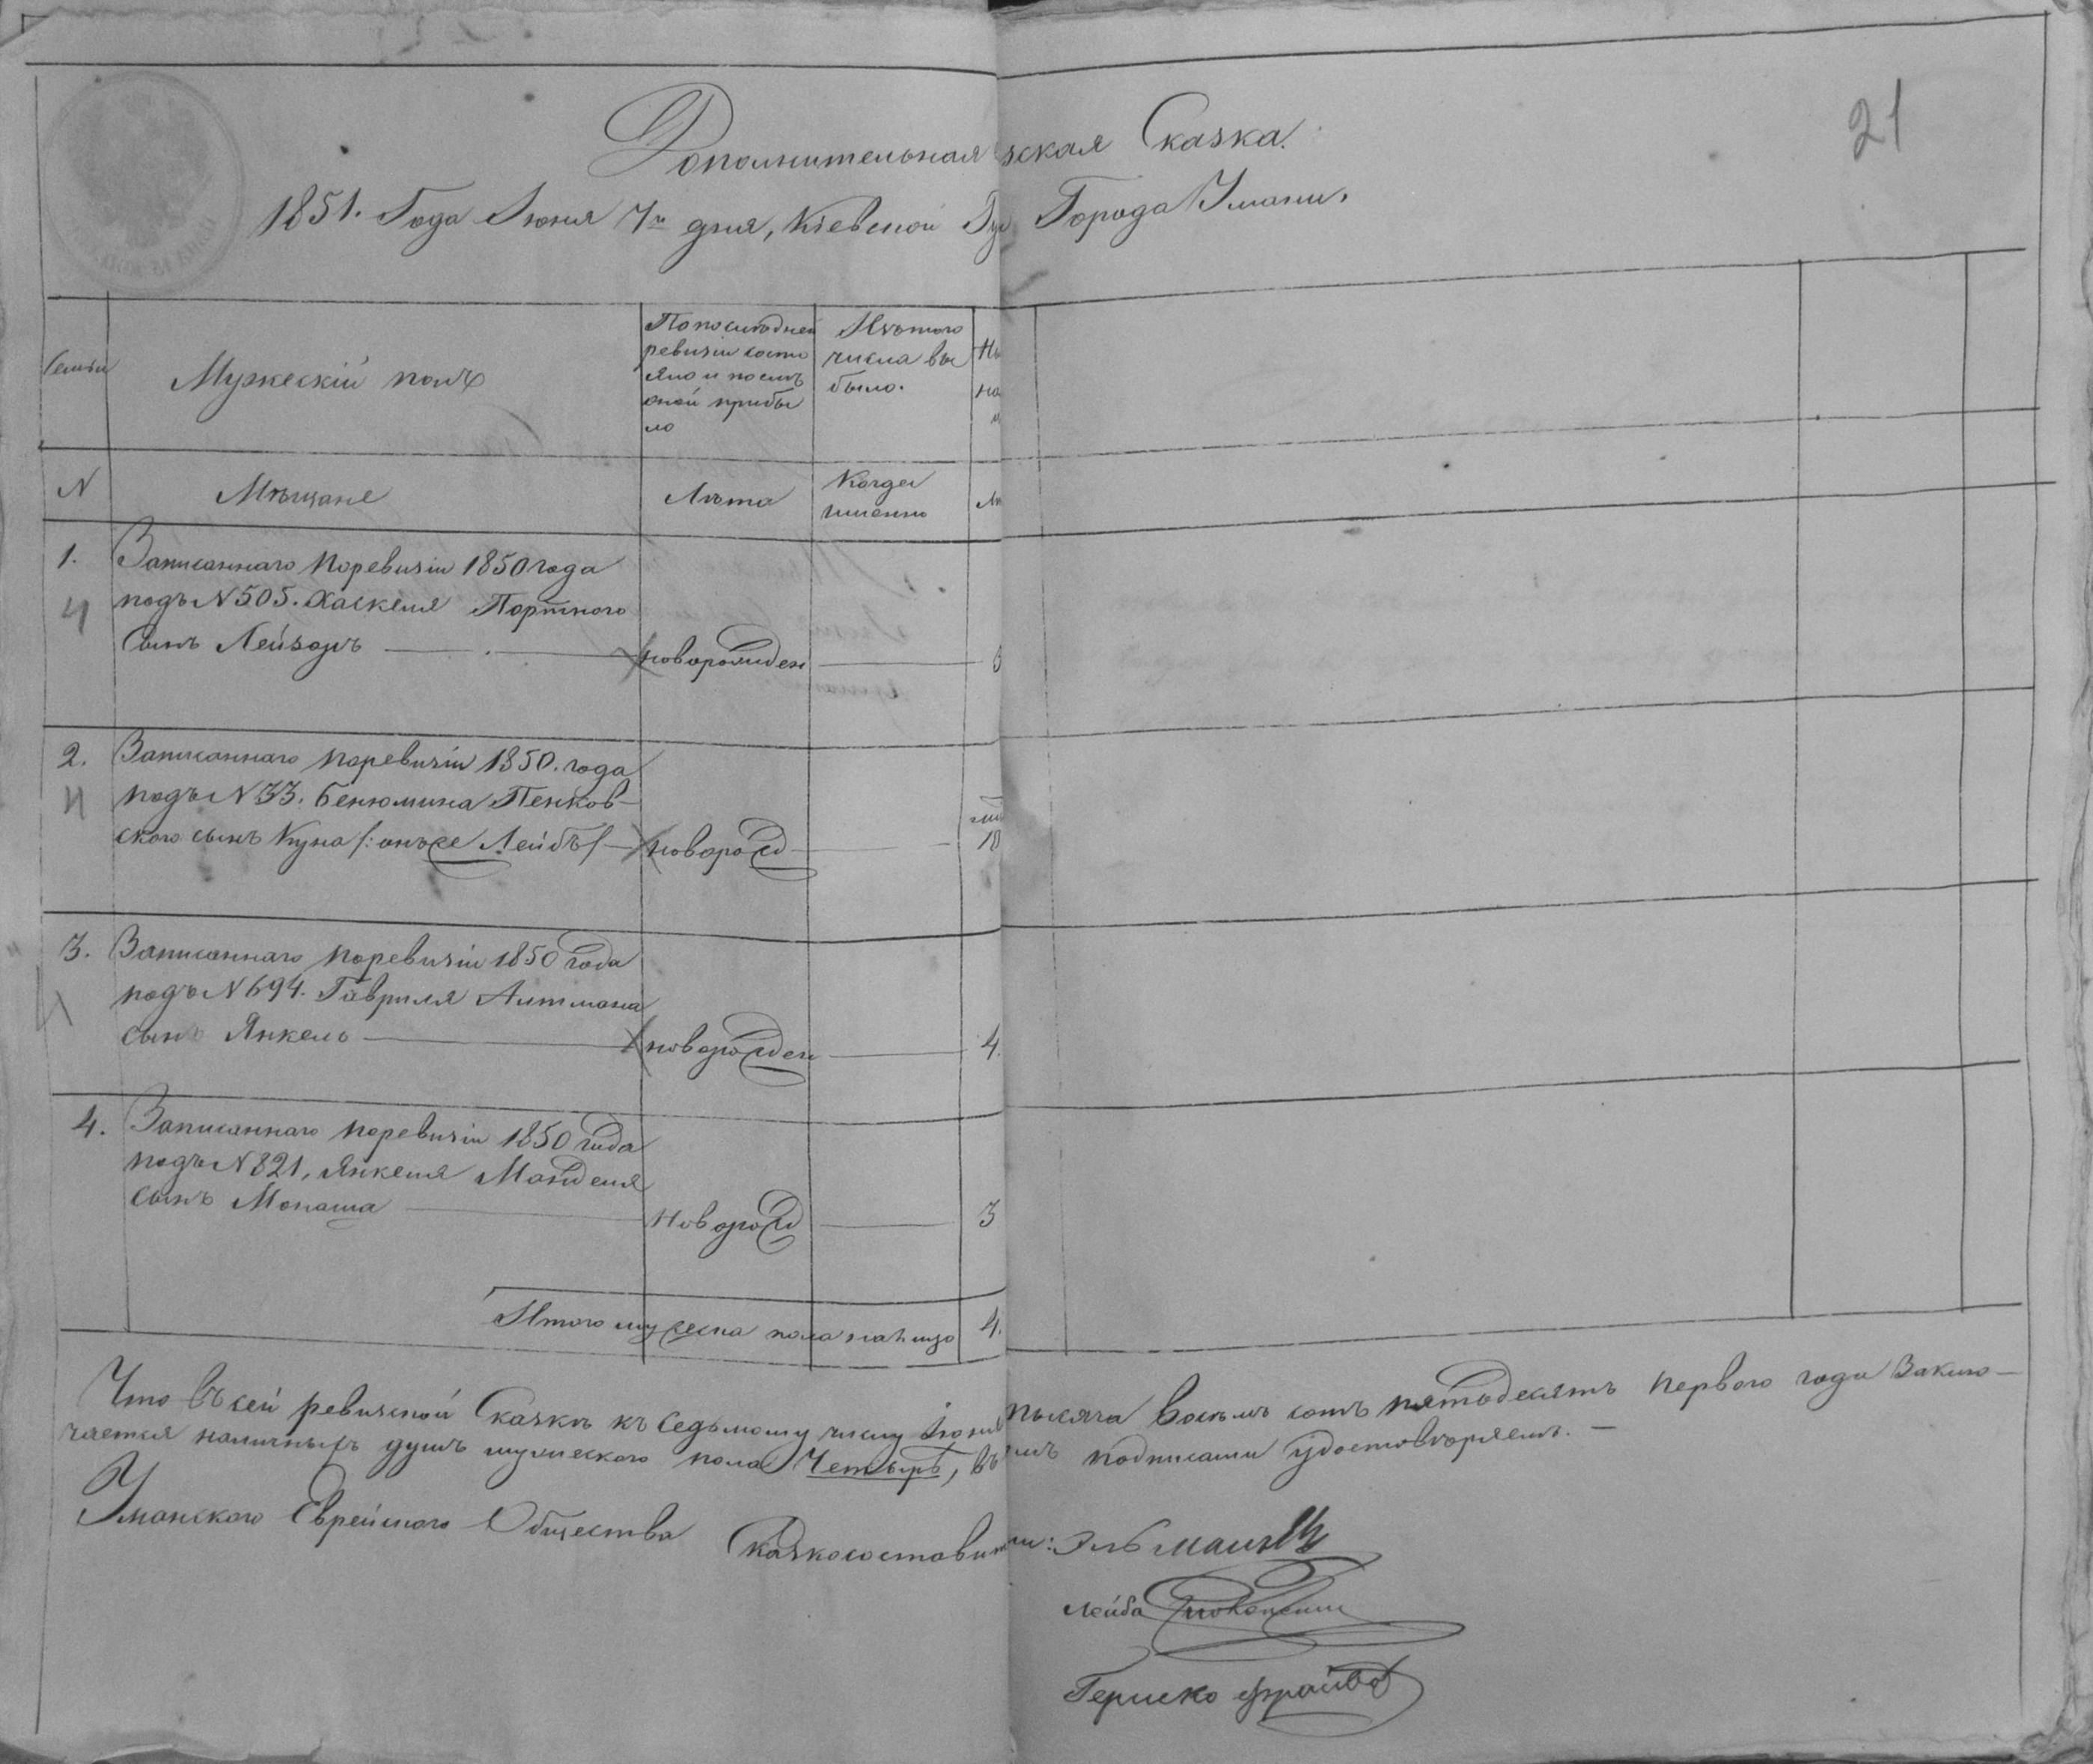 21
Дополнительная ская Сказка.
1851. Года Июня 7го дня, Кіевской Гу Города Умани.
Семьи
Мужескій полъ
По последней
ревизіи состо
яло и послѣ
оной прибы
ло
Изъ того
числа вы
было.
Ны
на
N
Мѣщане
Лѣта
Когда
именно
Лѣ
1.
Записаннаго поревизіи 1850 года
4
подъ N 505. Хаскеля Портного
сынъ Лейзоръ
новорожден
2.
Записаннаго поревизіи 1850. года
подъ N 33. Бенюмина Пенков-
ского сынъ Куна /: онъже Лейбъ /
новорожд
18
3.
Записаннаго поревизіи 1850 года
подъ N 694. Гавриля Алтмана
сынъ Янкель
новорожден
4.
4.
Записаннаго поревизіи 1850 года
подъ N 821, Янкеля Манделя
сынъ Монаша
новорожд
3
Итого мужеска пола налицо
4.
Что въ сей ревизской Сказкѣ къ Седьмому числу Іюня тысяча восемь сотъ пятьдесятъ перваго года Заклю-
чается наличныхъ душъ мужескаго пола Четыре, въ подписами удостовѣряемъ. —
Уманского Еврейского Общества Сказкосостави
Лейба
Гершко